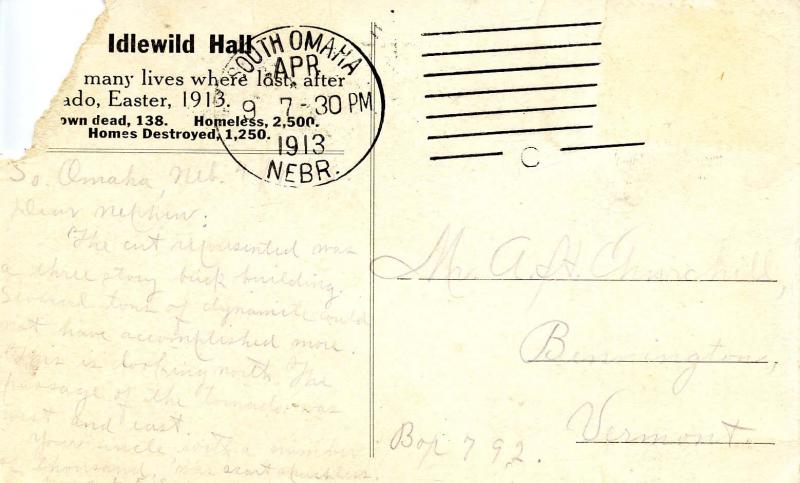 Idlewild Hall
many lives where lost, after
ado, Easter, 1913.
own dead, 138. Homeless, 2,500.
Homes Destroyed, 1,250.
SOUTH OMAHA
APR
9 7-30 PM
1913
NEBR.
So. Omaha, Neb.
Dear Nephew:
The cut represented was
a three story brick building.
Several tons of dynamite could
not have accomplished more.
This is looking north. The
passage of the tornado was
west and east.
Your uncle with a number
of thousand, was
Mr. A. H. Churchill,
Bennington,
Vermont.
Box 792.